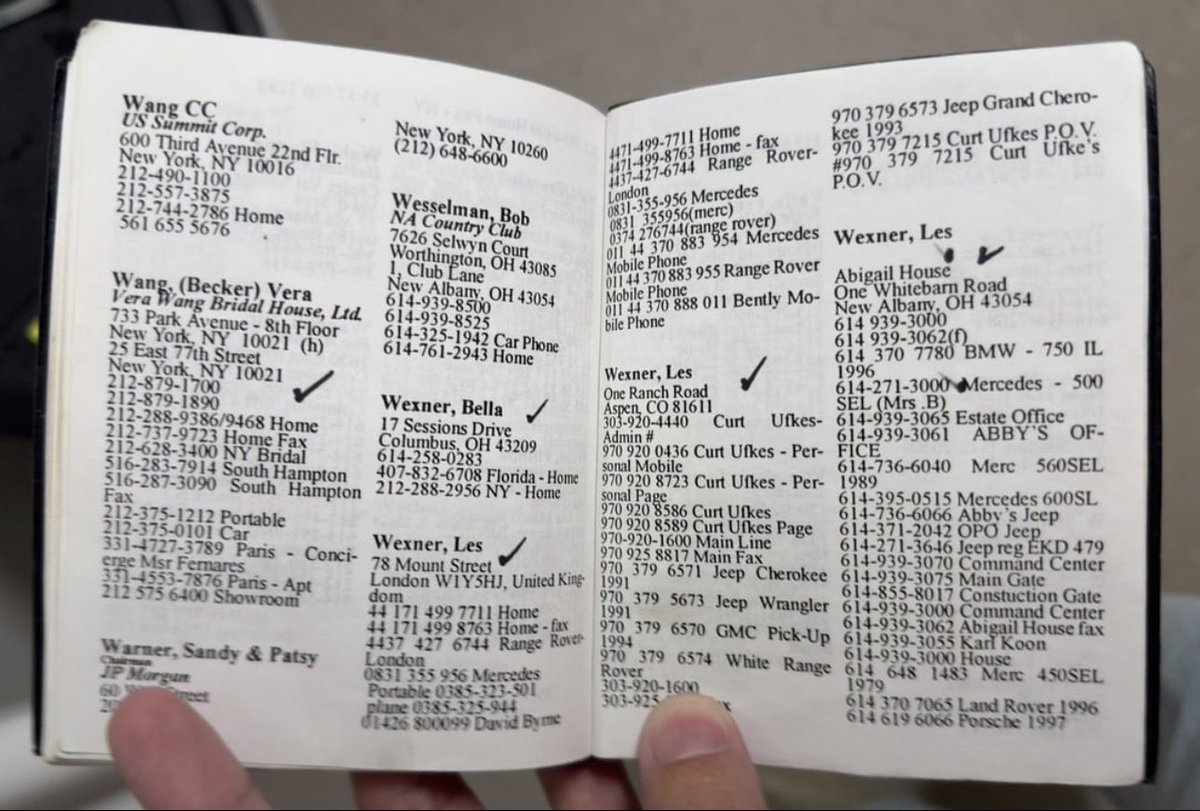 Wang CC
US Summit Corp.
600 Third Avenue 22nd Flr.
New York, NY 10016
212-490-1100
212-557-3875
212-744-2786 Home
561 655 5676
Wang, (Becker) Vera
Vera Wang Bridal House, Ltd.
733 Park Avenue - 8th Floor
New York, NY 10021 (h)
25 East 77th Street
New York, NY 10021
212-879-1700
212-879-1890
212-288-9386/9468 Home
212-737-9723 Home Fax
212-628-3400 NY Bridal
516-283-7914 South Hampton
516-287-3090 South Hampton
Fax
212-375-1212 Portable
212-375-0101 Car
331-4727-3789 Paris - Conci-
erge Msr Fernares
331-4553-7876 Paris - Apt
212 575 6400 Showroom
Warner, Sandy & Patsy
Chairman
JP Morgan
60
New York, NY 10260
(212) 648-6600
Wesselman, Bob
NA Country Club
7626 Selwyn Court
Worthington, OH 43085
1, Club Lane
New Albany, OH 43054
614-939-8500
614-939-8525
614-325-1942 Car Phone
614-761-2943 Home
Wexner, Bella
17 Sessions Drive
Columbus, OH 43209
614-258-0283
407-832-6708 Florida - Home
212-288-2956 NY - Home
Wexner, Les
78 Mount Street
London W1Y5HJ, United King-
dom
44 171 499 7711 Home
44 171 499 8763 Home - fax
4437 427 6744 Range Rover-
London
0831 355 956 Mercedes
Portable 0385-323-501
plane 0385-325-944
01426 800099 David Byrne
4471-499-7711 Home
4471-499-8763 Home - fax
4437-427-6744 Range Rover-
London
0831-355-956 Mercedes
0831 355956(merc)
0374 276744(range rover)
011 44 370 883 954 Mercedes
Mobile Phone
011 44 370 883 955 Range Rover
Mobile Phone
011 44 370 888 011 Bently Mo-
bile Phone
Wexner, Les
One Ranch Road
Aspen, CO 81611
303-920-4440 Curt Ufkes-
Admin #
970 920 0436 Curt Ufkes - Per-
sonal Mobile
970 920 8723 Curt Ufkes - Per-
sonal Page
970 920 8586 Curt Ufkes
970 920 8589 Curt Ufkes Page
970-920-1600 Main Line
970 925 8817 Main Fax
970 379 6571 Jeep Cherokee
1991
970 379 5673 Jeep Wrangler
1991
970 379 6570 GMC Pick-Up
1994
970 379 6574 White Range
Rover
303-920-1600
303-925
970 379 6573 Jeep Grand Chero-
kee 1993
970 379 7215 Curt Ufkes P.O.V.
#970 379 7215 Curt Ufke's
P.O.V.
Wexner, Les
Abigail House
One Whitebarn Road
New Albany, OH 43054
614 939-3000
614 939-3062(f)
614 370 7780 BMW - 750 IL
1996
614-271-3000 Mercedes - 500
SEL (Mrs .B)
614-939-3065 Estate Office
614-939-3061 ABBY'S OF-
FICE
614-736-6040 Merc 560SEL
1989
614-395-0515 Mercedes 600SL
614-736-6066 Abby's Jeep
614-371-2042 OPO Jeep
614-271-3646 Jeep reg EKD 479
614-939-3070 Command Center
614-939-3075 Main Gate
614-855-8017 Constuction Gate
614-939-3000 Command Center
614-939-3062 Abigail House fax
614-939-3055 Karl Koon
614-939-3000 House
614 648 1483 Merc 450SEL
1979
614 370 7065 Land Rover 1996
614 619 6066 Porsche 1997